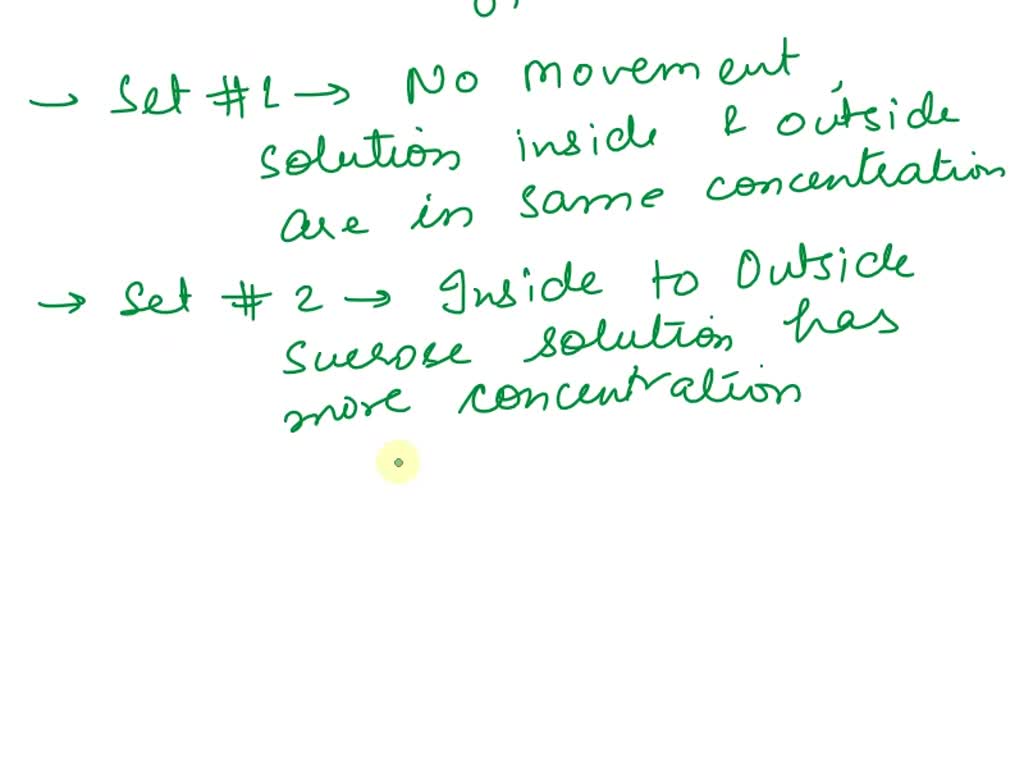 → Set #1 → No movement,
solution inside & outside
are in same concentration
→ Set # 2 → Inside to Outside
sucrose solution has
more concentration